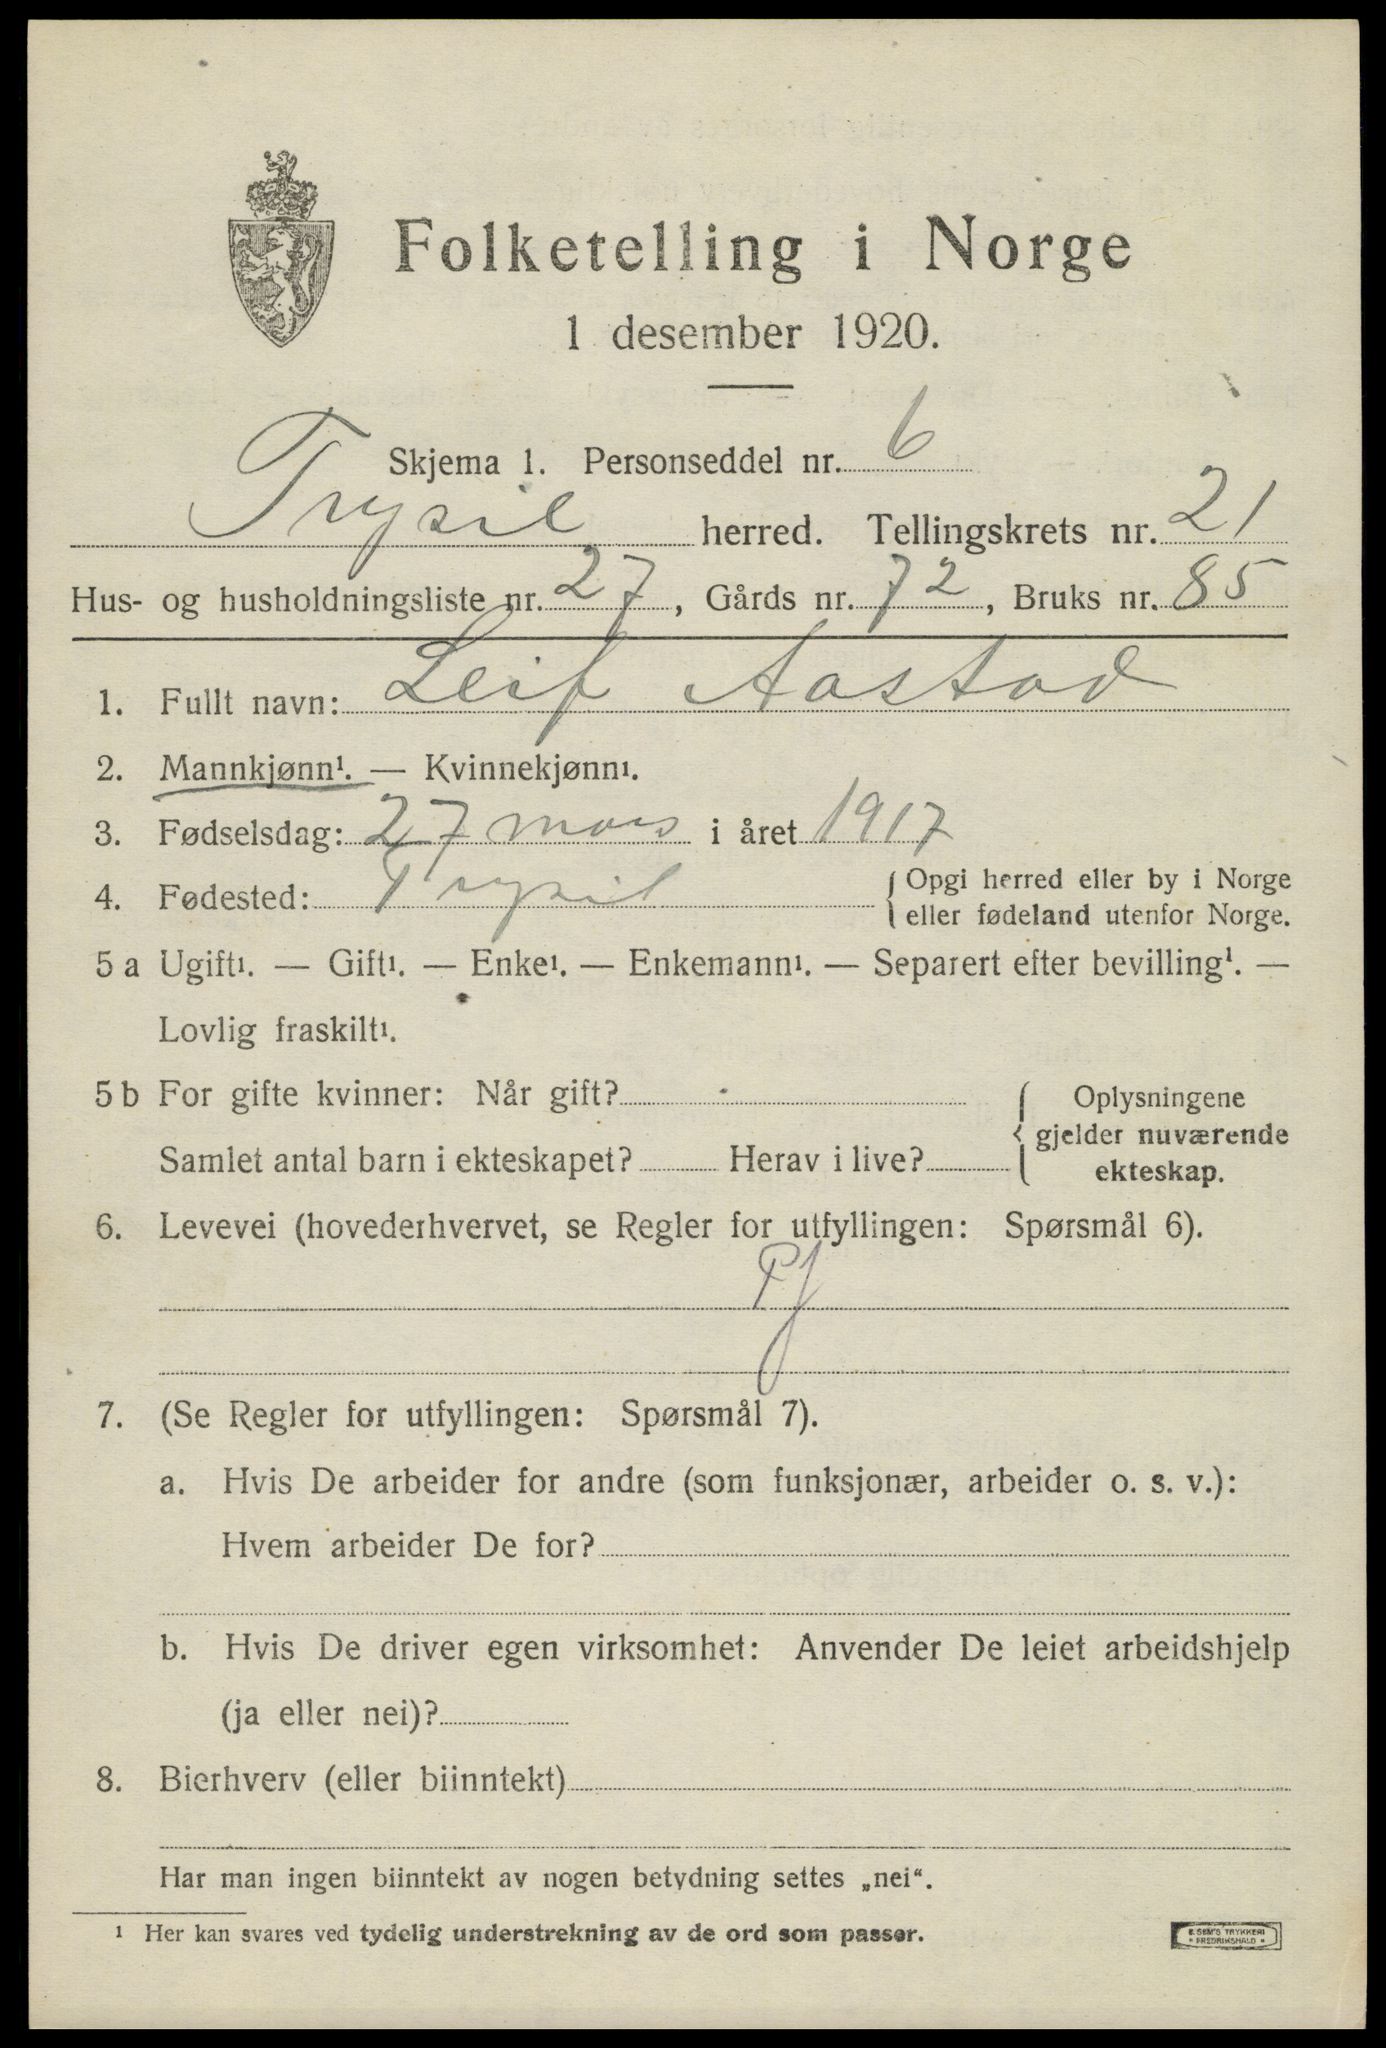 Folketelling i Norge
1 desember 1920.
Skjema 1. Personseddel nr. 6
Trysil herred. Tellingskrets nr. 21
Hus- og husholdningsliste nr. 27, Gårds nr. 72, Bruks nr. 85
1. Fullt navn: Leif Aastad
2. Mannkjønn¹. — Kvinnekjønn¹.
3. Fødselsdag: 27 mars i året 1917
4. Fødested: Trysil { Opgi herred eller by i Norge
eller fødeland utenfor Norge.
5 a Ugift¹. — Gift¹. — Enke¹. — Enkemann¹. — Separert efter bevilling¹. —
Lovlig fraskilt¹.
5 b For gifte kvinner: Når gift? { Oplysningene
gjelder nuværende
Samlet antal barn i ekteskapet? Herav i live? ekteskap.
6. Levevei (hovederhvervet, se Regler for utfyllingen: Spørsmål 6).
7. (Se Regler for utfyllingen: Spørsmål 7).
a. Hvis De arbeider for andre (som funksjonær, arbeider o. s. v.):
Hvem arbeider De for?
b. Hvis De driver egen virksomhet: Anvender De leiet arbeidshjelp
(ja eller nei)?
8. Bierhverv (eller biinntekt)
Har man ingen biinntekt av nogen betydning settes „nei“.
¹ Her kan svares ved tydelig understrekning av de ord som passer.
E. SEM'S TRYKKERI
FREDRIKSHALD